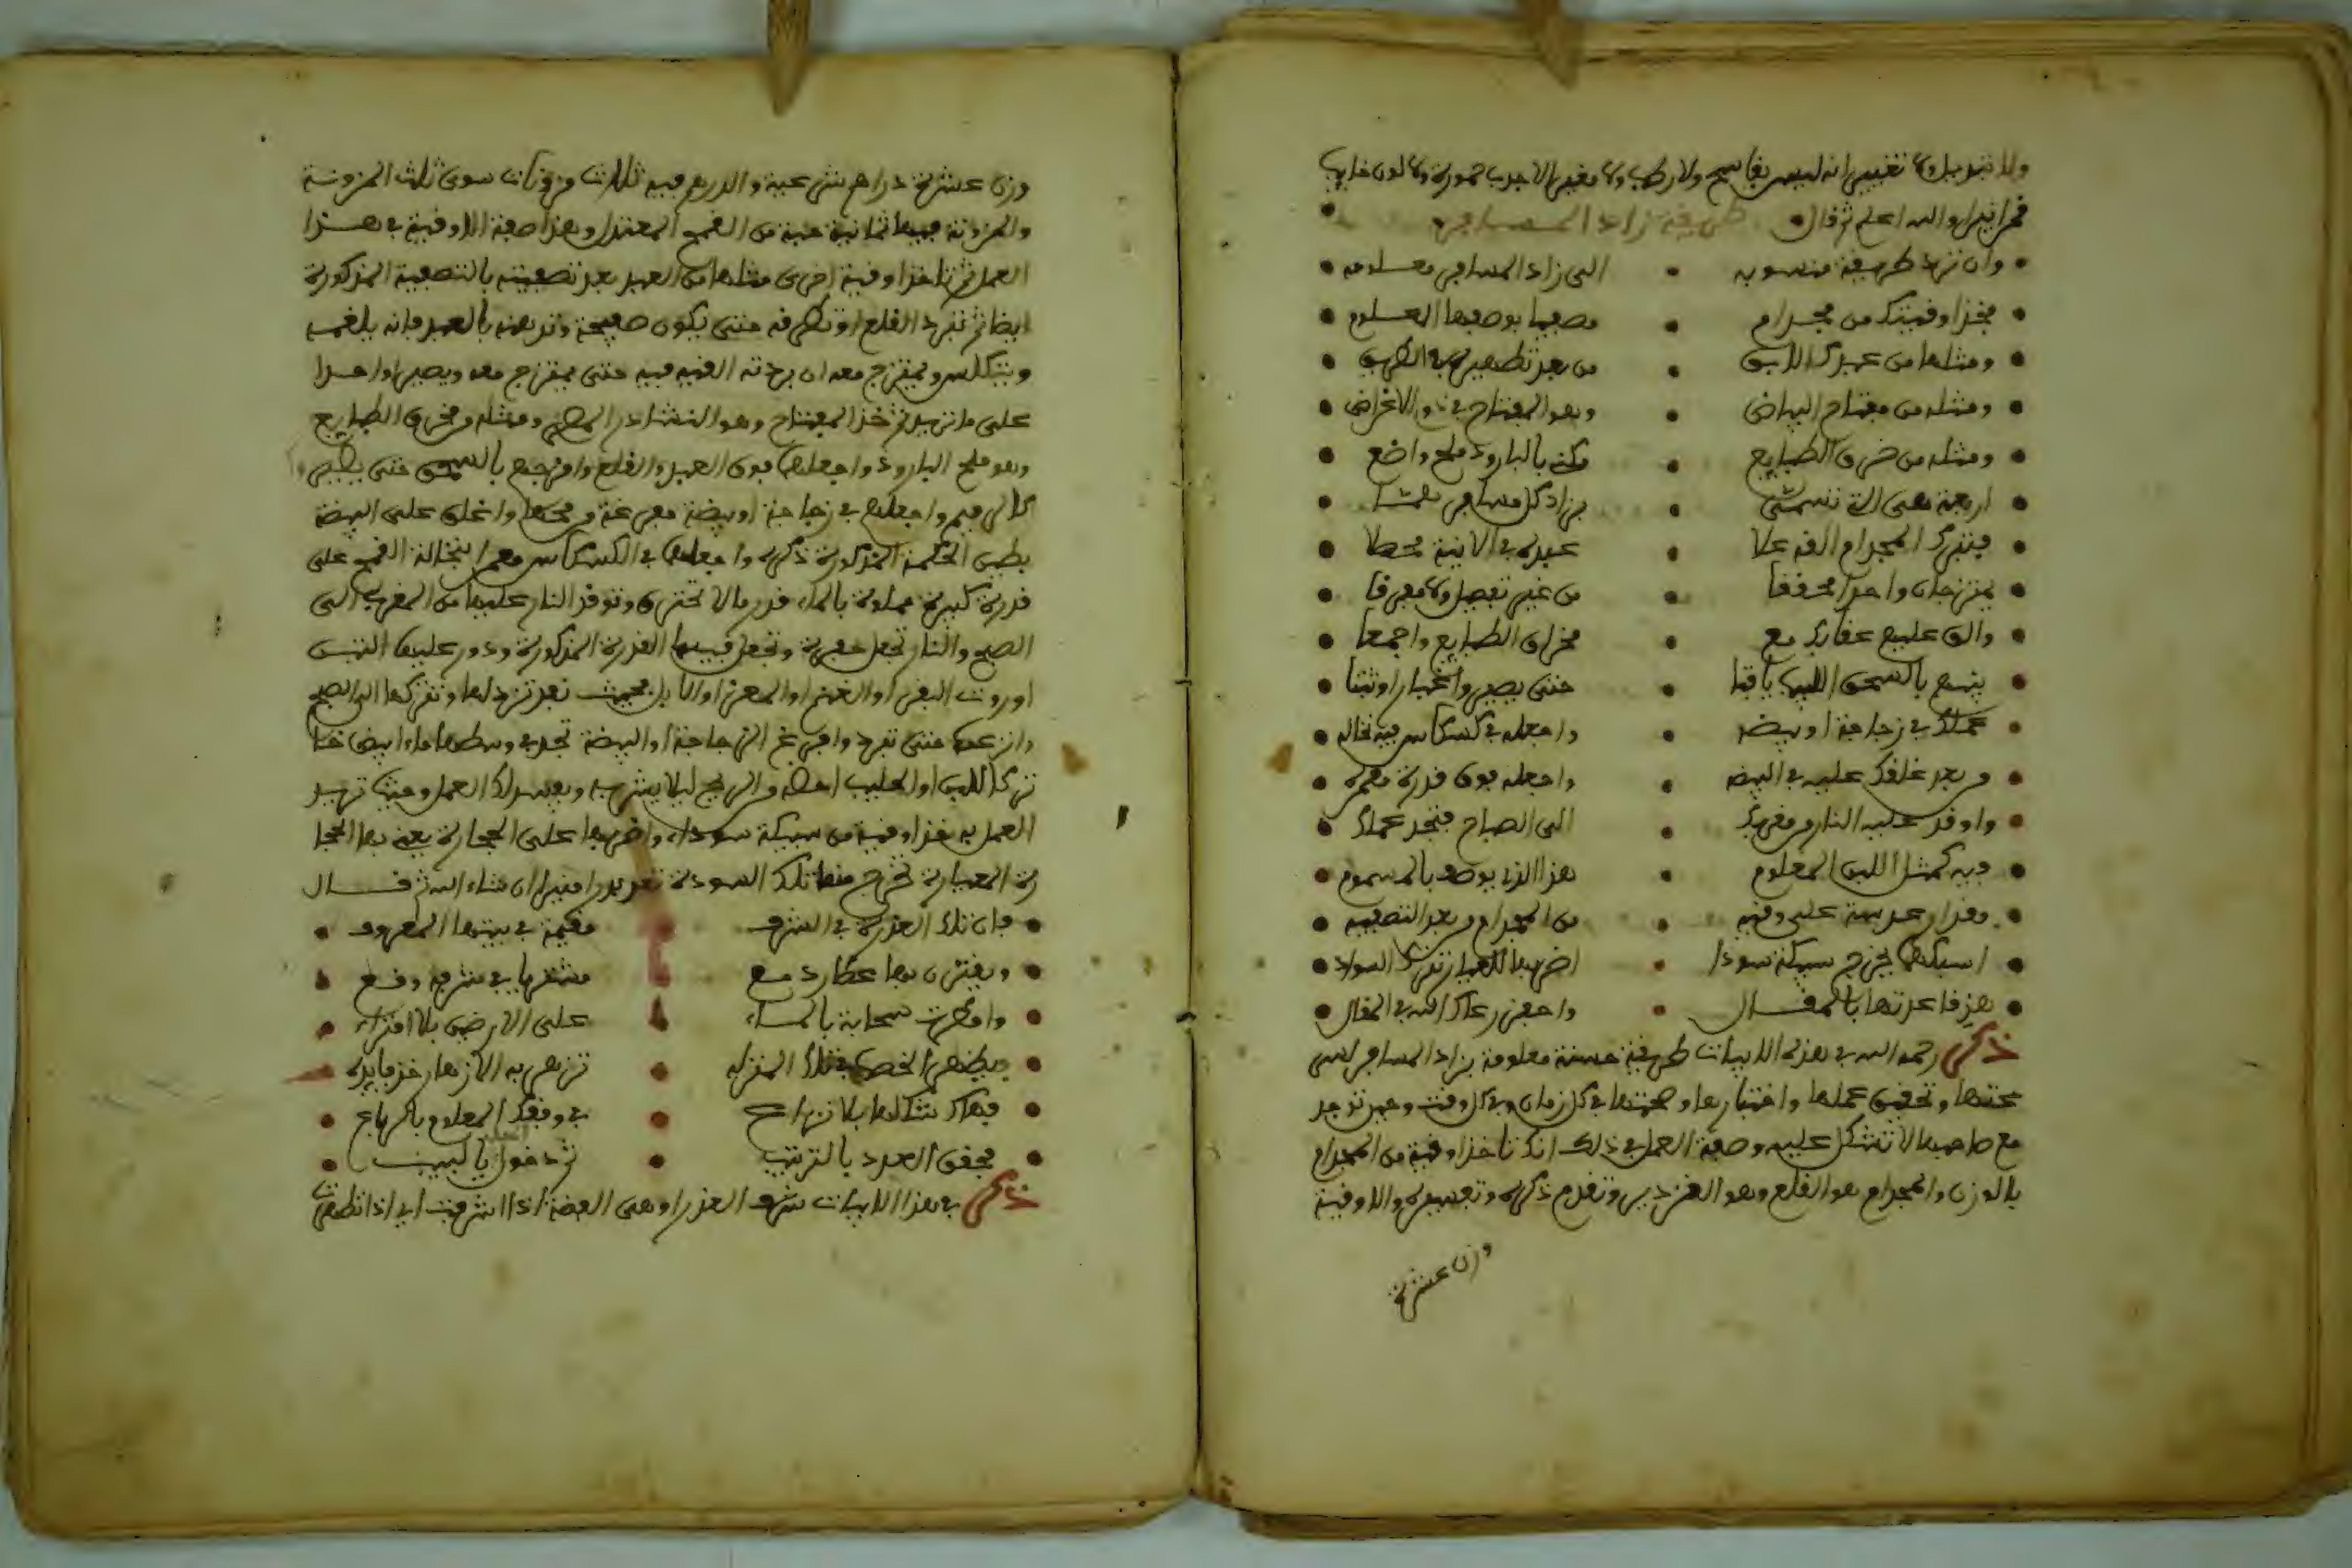 ولا تبديل ولا تغيير انه ليس بفاسح ولا ركب ولا مغير الا جرب صورة ولا لون
والله اعلم ثم قال طريقة زاد المسافر
وان ترد طريقة منسوبه • الى زاد المسافر معلومه
فخذ اوقيتك من مجدام • مصفيا بوصفها العلوم
ومثلها من عبدك اللايق • من بعد تطهيره في الطريق
ومثله من مفتاح البياض • وهو المفتاح في ذو الاغراض
ومثله من خرق الطبايع • مكنه بالبارود ملح واضع
اربعة هي التي تسمى • بزاد كل مسافر
فتترك المجدام الفه علا • عبده في الانية
يمتزجان واحدا محققا • من غير تفصيل ولا مفرقا
والق عليهم عقارك مع • مخراق الطبايع واجمعا
بالسحق اللين باقيا • حتى يصير واغبارا وثبتا
عملك في زجاجة او بيضه • واجعله في كسكاس فيه نخاله
من بعد غلقك عليه في البيضه • واجعله فوق قدرة معمره
واوقد عليه النار من مغربك • الى الصباح فتجد عملك
فيه كمثل اللبن المعلوم • هذا الذي يوصف بالمسموم
وقدار عدسة على وقيه • من المجدام من بعد التصفيه
اسبكها يخرج سبيكة سودا • اضربها للعيار تترك السواد
هذه قاعدتها بالمقال • واحفظ رعاك الله في المقال
ذكر رحمه الله في هذه الابيات طريقة حسنة معلومة بزاد المسافر
صحتها وتحقيق عملها واختبارها وصحتها في كل زمان وفي كل وقت وحين توجد
مع صاحبها لا تشكل عليه وصفة العمل في ذلك انك تاخذ اوقية من المجدام
بالوزن والمجدام هو القلع وهو القزدير وتقدم ذكره وتفسيره والاوقية
وزن عشرة
وزن عشرة دراهم شرعية والدرهم فيه ثلاث موزونات سوى ثلث الموزونة
والموزونة فيها ثمانية حبة من القمح المعتدل وهذا صفة الاوقية في هذا
العمل ثم تاخذ اوقية اخرى مثلها من العبد بعد تصفيته بالتصفية المذكورة
ايضا ثم تبرد القلع او تطرقه حتى يكون صفيحة وتدهنه بالعبد فانه يلغمه
ويتكلس ويمتزج معه ان بردته القيه فيه حتى يمتزج معه ويصيرا واحدا
على ما تريد ثم خذ المفتاح وهو النشادر المطير ومثله من مخرق الطبايع
وهو ملح البارود واجعلها فوق العبد والقلع وامزجهم بالسحق حتى يصير
واجعلهم في زجاجة او بيضة مفرغة من محها واغلق على البيضة
بطين الحكمة المذكورة ذكره واجعلها في الكسكاس معمر بنخالة القمح على
قدرة كبيرة مملوة بالماء قدر ما لا تحترق وتوقد النار عليها من المغرب الى
الصبح والنار تجعل حفرة وتجعل فيها القدرة المذكورة ودور عليها التبن
او روث البقر او الغنم او المعز او الابل بحيث تقد نزولها وتتركها الى الصبح
وانزعها حتى تبرد وافرغ الزجاجة او البيضة تجد في وسطها ماء ابيض خا
ثرا كاللبن او الحليب احفظه من الريح ليلا يشربه ويفسد لك العمل وحين تريد
العمل به خذ اوقية من سبيكة سوداء واضربها على الحجارة يعني بها الحجا
رة المعيارة تخرج منها تلك السودة ان شاء الله ثم قال
فان تلك العذرة في الشرف • مقيمة في بيتها المعروف
ويقترن بها عطارد مع • مشتريا في شرفه وقع
وامطرت سحابة بالماء • على الارض بلا افتراء
ويظهر الخصب في تلك المنزله • تزهر به الازهار خذ فايده
فهاك شكلها بلا نزاع • في وفقك المعلوم بالرباع
محقق العدد بالترتيب • ثم دخول بالبيت
ذكر في هذا الابيات شرف العذرا وهي الفضة اذا اشرفت اي اذا تطهرت